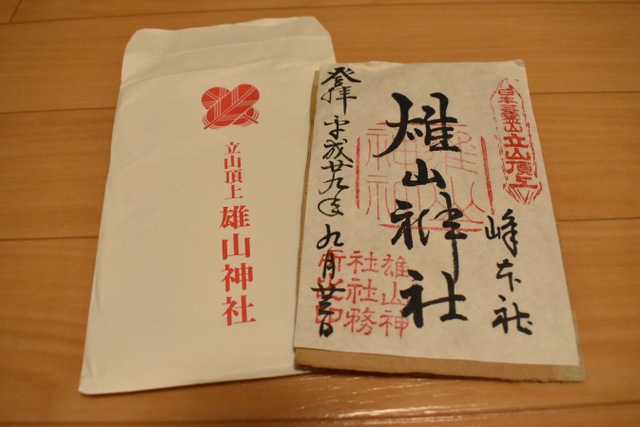 立山頂上
雄山神社
日本三霊山立山頂上
峰本社
雄山神社
雄山神
社社務
所之印
登拝
平成廿九年九月廿三日